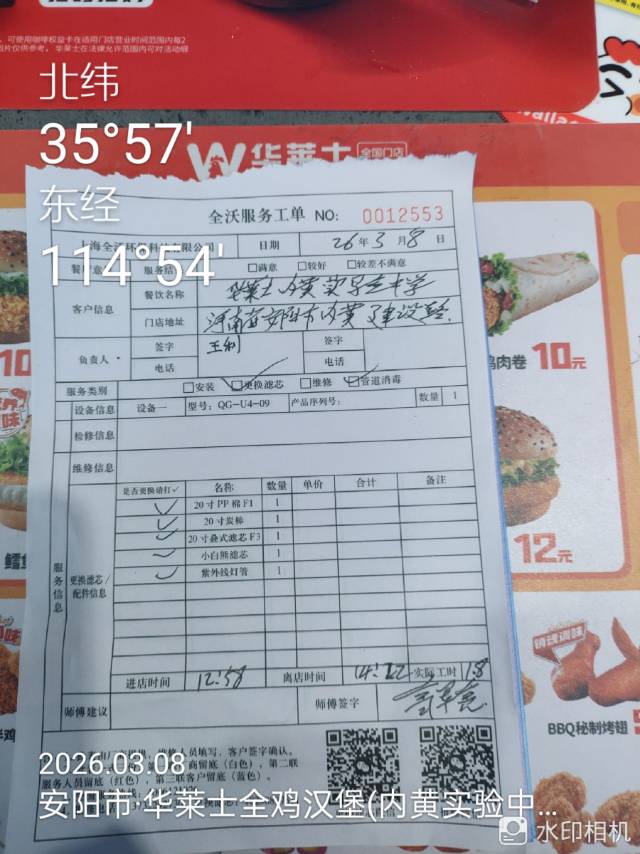 北纬
35°57'
东经
114°54'
华莱士 全国门店
全沃服务工单 NO: 0012553
日期 26年3月8日
□满意 □较好 □较差不满意
客户信息
餐饮名称 华莱士内黄实验中学
门店地址
负责人
签字 王利 签字
电话 电话
服务类别 □安装 ☑更换滤芯 □维修 ☑管道消毒
设备信息 设备一 型号: QG-U4-09 产品序列号: 数量 1
检修信息
维修信息
服务信息
更换滤芯/配件信息
是否更换请打✓ 名称 数量 单价 合计 备注
✓ 20寸PP棉F1 1
✓ 20寸炭棒 1
✓ 20寸叠式滤芯F3 1
✓ 小白熊滤芯 1
✓ 紫外线灯管 1
进店时间 12:58 离店时间 14:22 实际工时 1.8
师傅建议 师傅签字
维修人员填写,客户签字确认。
留底(白色),第二联
服务人员留底(红色),第三联客户留底(蓝色)。
鸡肉卷 10元
12元
销魂调味
BBQ秘制烤翅
2026.03.08
安阳市·华莱士全鸡汉堡(内黄实验中…
水印相机